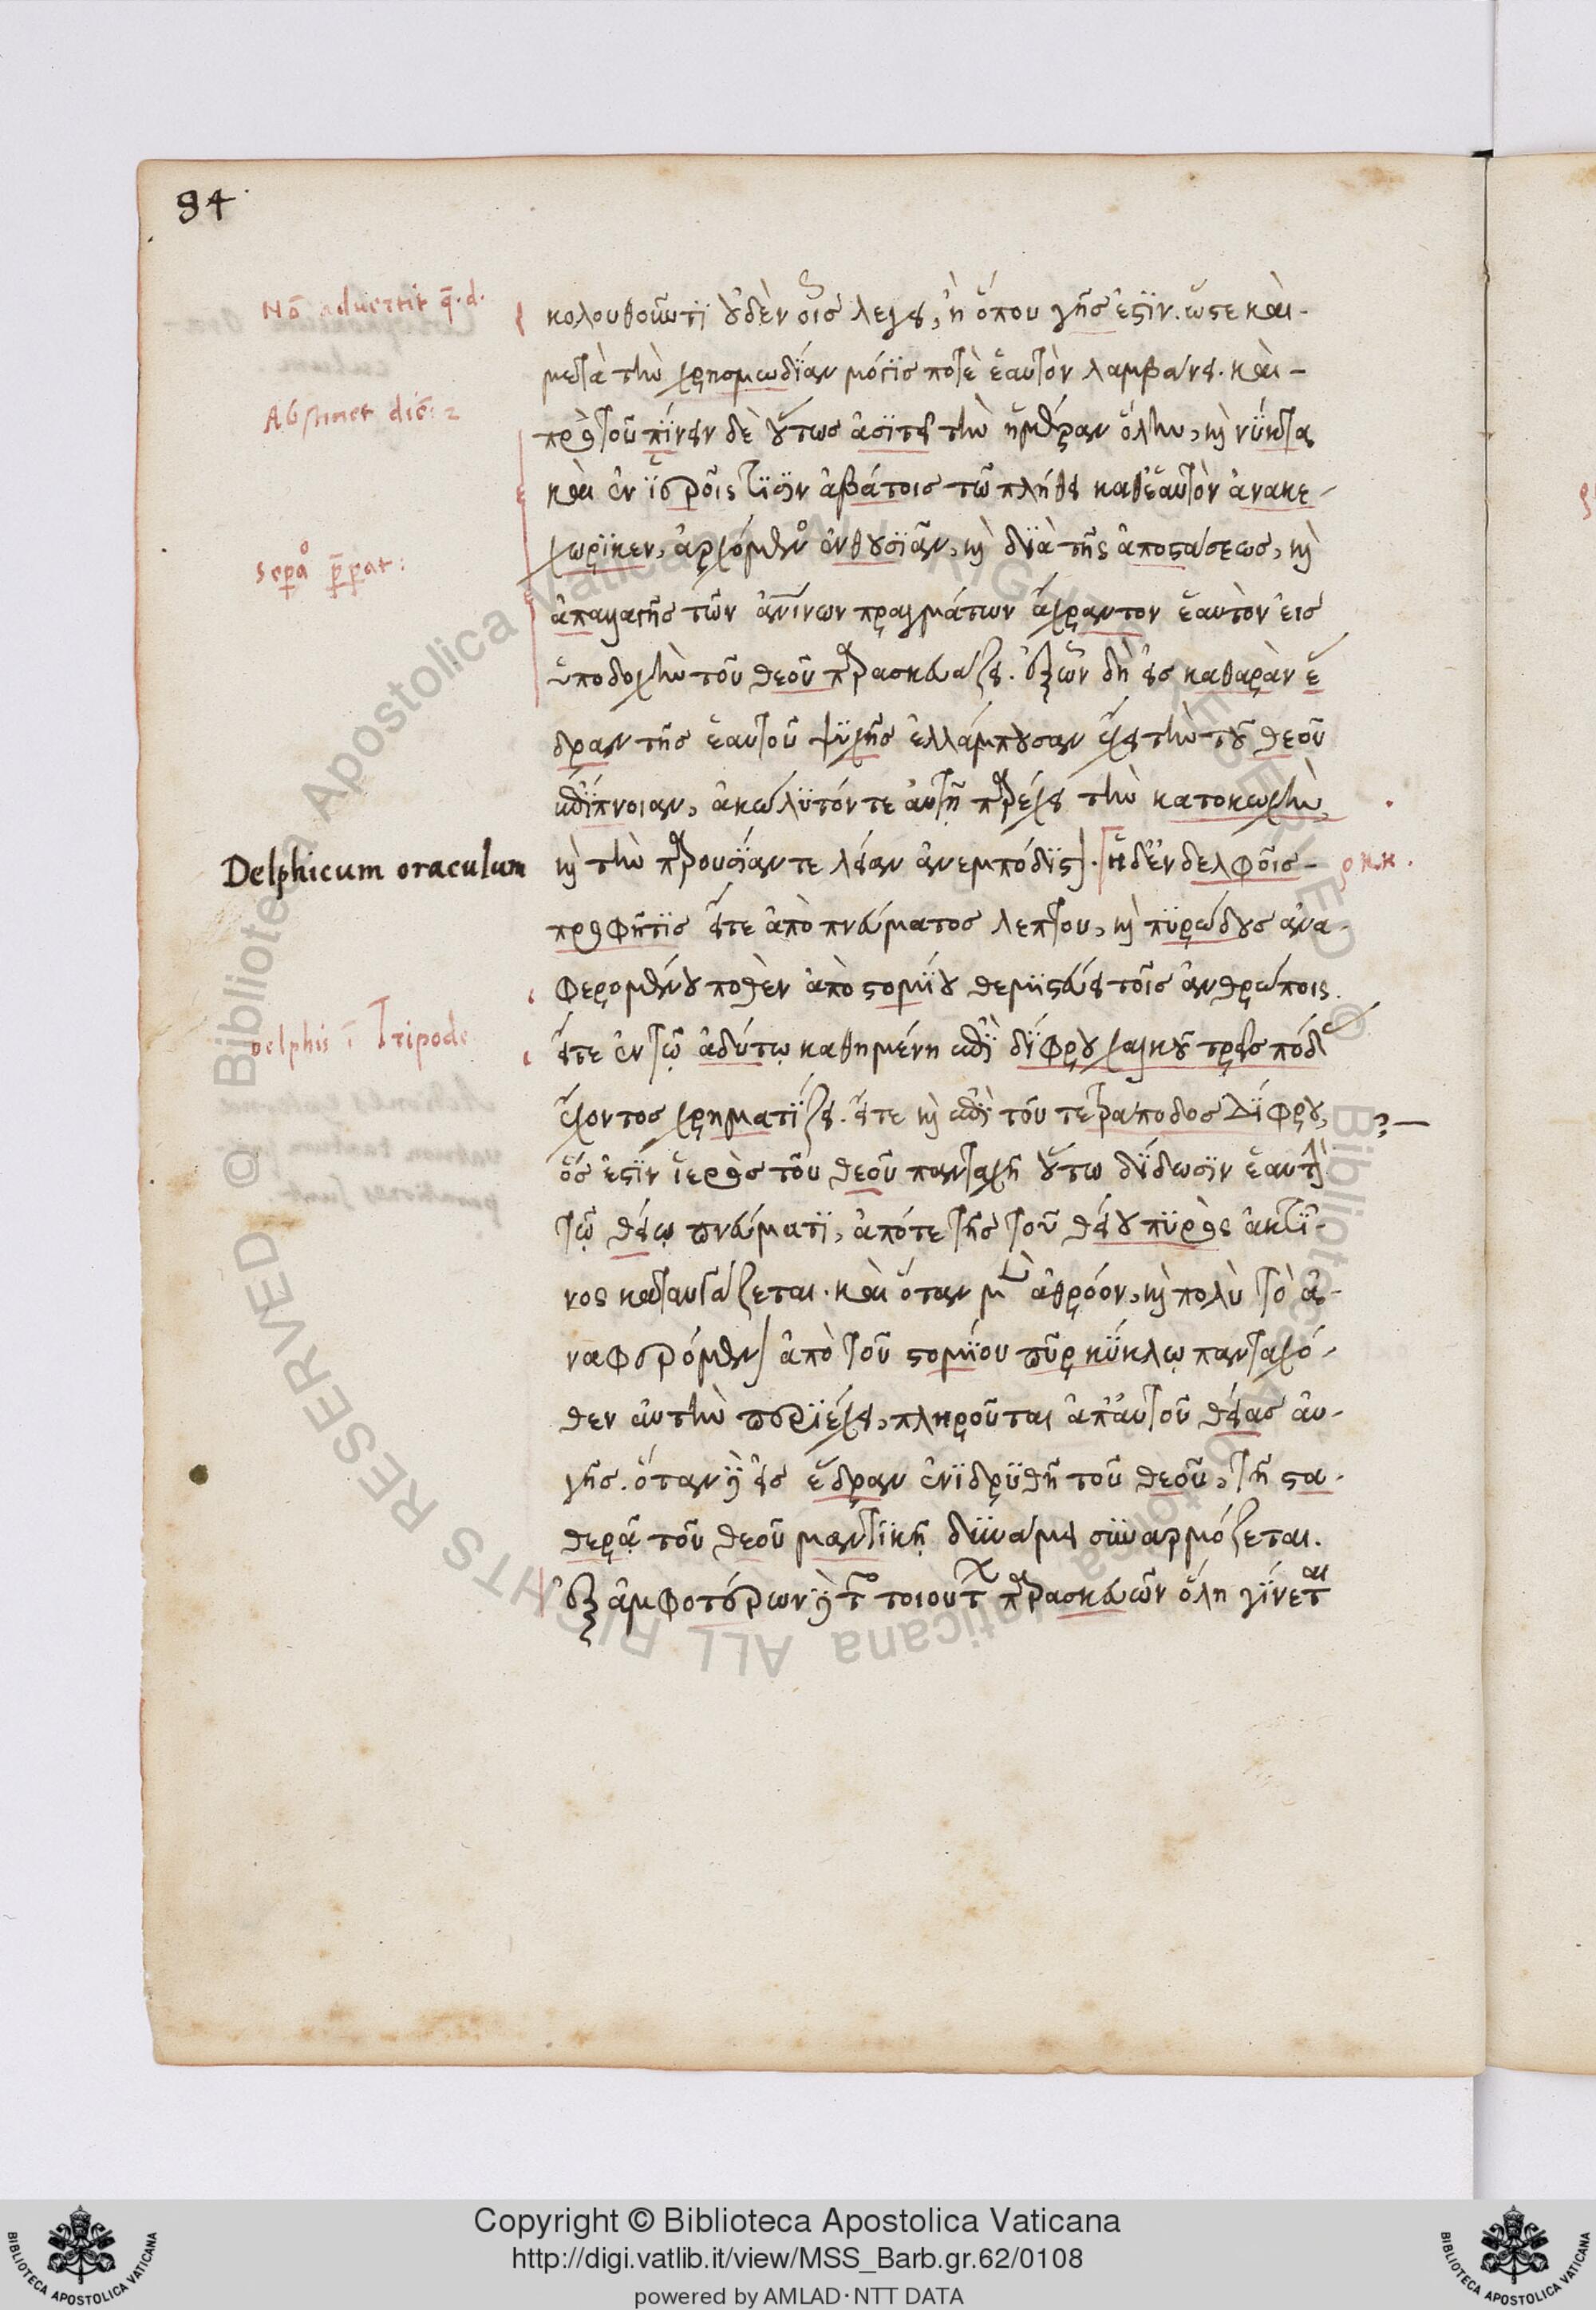 94
Nō advertit q̄.d.
κολουθοῦντι οὐδὲν οἷς λέγει, ἢ ὅπου γῆς ἐστιν. ὥστε καὶ
μετὰ τὴν χρησμωδίαν μόγις ποτὲ ἑαυτὸν λαμβάνει. καὶ
πρὸ τοῦ πίνειν δὲ οὕτως ἀσιτεῖ τὴν ἡμέραν ὅλην, καὶ νύκτα
καὶ ἐν ἱεροῖς τισὶν ἀβάτοις τῶ πλήθει καθ' ἑαυτὸν ἀνακε-
χώρικεν, ἀρχόμενος ἐνθουσιᾶν, καὶ διὰ τῆς ἀποστάσεως, καὶ
ἀπαγαγῆς τῶν ἀνίνων πραγμάτων ἄχραντον ἑαυτὸν εἰς
ὑποδοχὴν τοῦ θεοῦ παρασκευάζει. ἐξ ὧν δὴ εἰς καθαρὰν ἕ
δραν τῆς ἑαυτοῦ ψυχῆς ἐλλάμπουσαν ἔχει τὴν τοῦ θεοῦ
ἐπίπνοιαν, ἀκώλυτόν τε αὐτῇ παρέχει τὴν κατοκωχὴν,
Delphicum oraculum
καὶ τὴν παρουσίαν τελείαν ἀνεμπόδιστ. ἡ δ' ἐν δελφοῖς
προφῆτις εἴτε ἀπὸ πνεύματος λεπτοῦ, καὶ πυρώδους ἀνα-
φερομένου ποθὲν ἀπὸ στομίου θεμιστεύει τοῖς ἀνθρώποις.
Delphis ī Tripode
εἴτε ἐν τῷ ἀδύτῳ καθημένη ἐπὶ δίφρου χαλκοῦ τρεῖς πόδ
ἔχοντος χρηματίζει. εἴτε καὶ ἐπὶ τοῦ τετράποδος δίφρου,
ὅς ἐστιν ἱερὸς τοῦ θεοῦ πανταχῇ οὕτω δίδωσιν ἑαυτ
τῷ θείῳ πνεύματι, ἀπό τε τῆς τοῦ θείου πυρὸς ἀκτῖ-
νος καταυγάζεται. καὶ ὅταν μ ἀθρόον, καὶ πολὺ τὸ ἀ-
ναφερόμεν ἀπὸ τοῦ στομίου πῦρ κύκλῳ πανταχό-
θεν αὐτὴν περιέχει, πληροῦται ἀπ' αὐτοῦ θείας αὐ-
γῆς. ὅταν δ' εἰς ἕδραν ἐνιδρυθῇ τοῦ θεοῦ, τῇ στα-
θερᾷ τοῦ θεοῦ μαντικῇ δυνάμει συναρμόζεται.
ἐξ ἀμφοτέρων δὲ τ τοιουτ παρασκευῶν ὅλη γίνεται
Copyright © Biblioteca Apostolica Vaticana
http://digi.vatlib.it/view/MSS_Barb.gr.62/0108
powered by AMLAD · NTT DATA